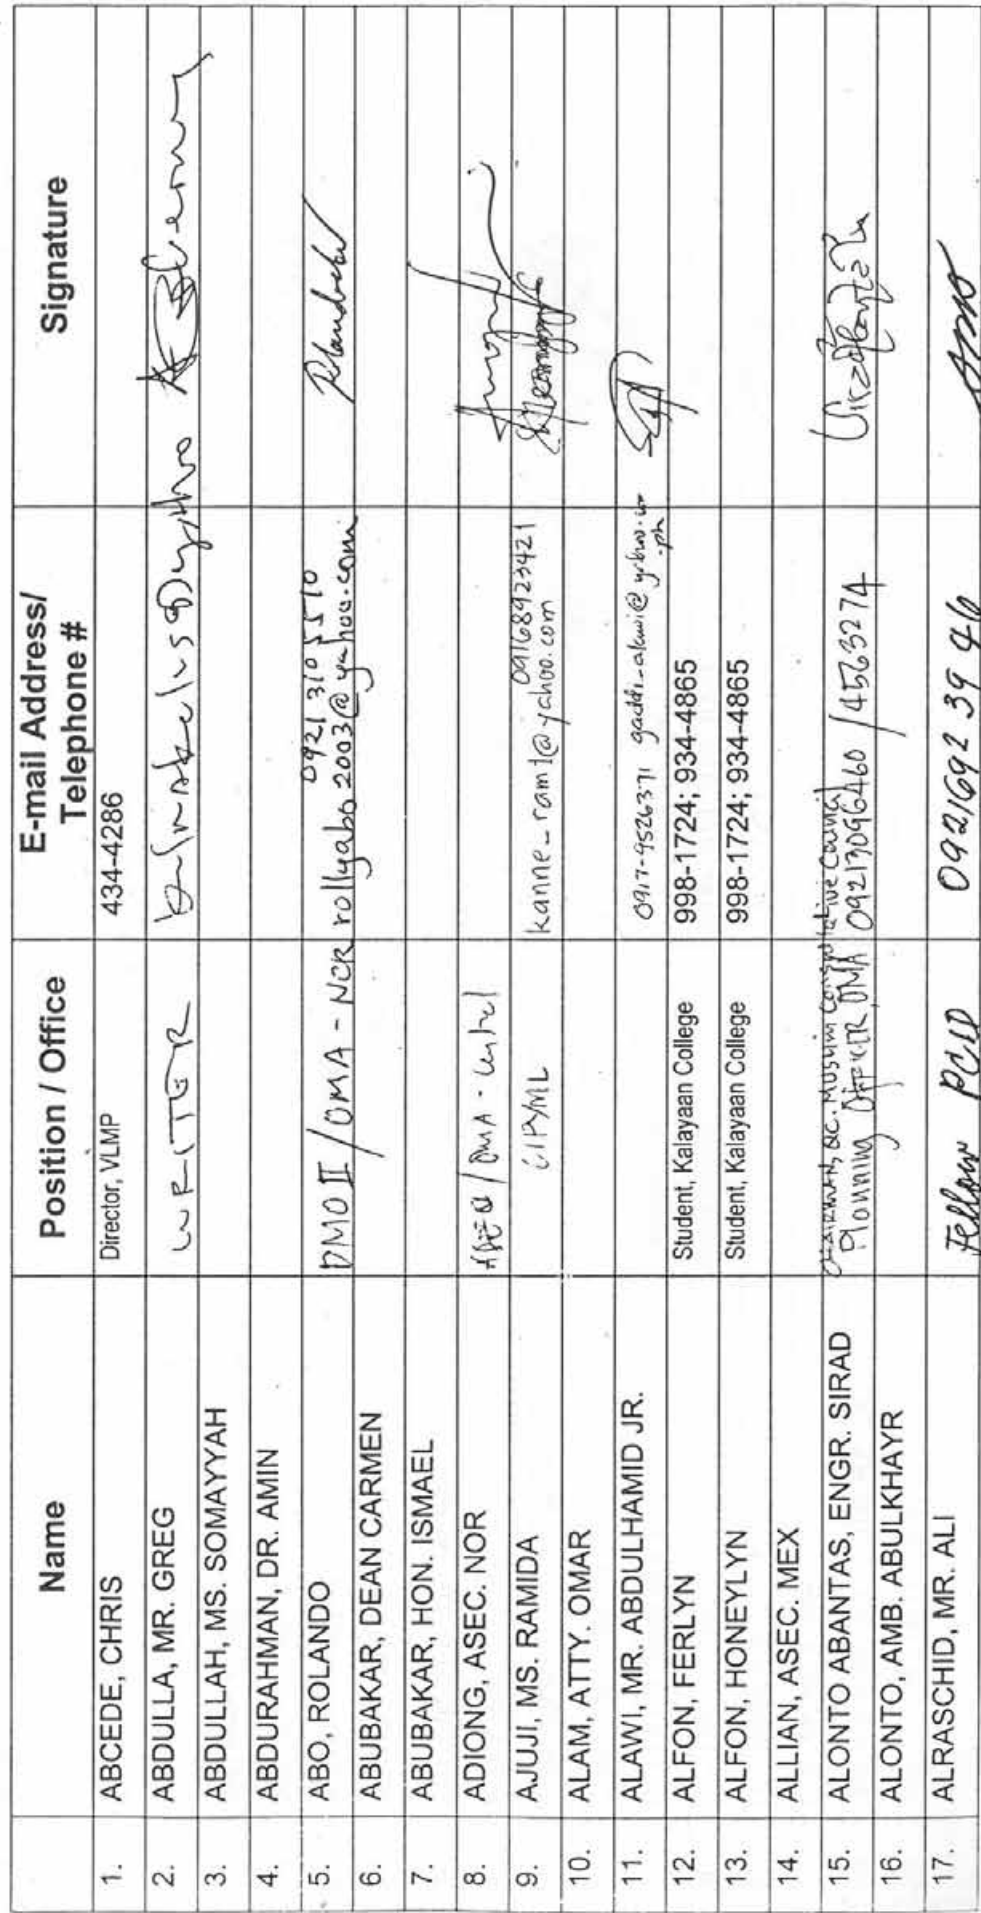 Name Position / Office E-mail Address/ Telephone # Signature
1. ABCEDE, CHRIS Director, VLMP 434-4286
2. ABDULLA, MR. GREG WRITER
3. ABDULLAH, MS. SOMAYYAH
4. ABDURAHMAN, DR. AMIN
5. ABO, ROLANDO DMO II / OMA - NCR 0921 310 5510 rollyabo2003@yahoo.com
6. ABUBAKAR, DEAN CARMEN
7. ABUBAKAR, HON. ISMAEL
8. ADIONG, ASEC. NOR / OMA - Central
9. AJUJI, MS. RAMIDA 09168923421 kanne_ram1@yahoo.com
10. ALAM, ATTY. OMAR
11. ALAWI, MR. ABDULHAMID JR. 0917-9526371
12. ALFON, FERLYN Student, Kalayaan College 998-1724; 934-4865
13. ALFON, HONEYLYN Student, Kalayaan College 998-1724; 934-4865
14. ALLIAN, ASEC. MEX
15. ALONTO ABANTAS, ENGR. SIRAD CHAIRMAN, QC. Muslim Consultative Council
Planning Officer OMA 09213096460 / 4563274
16. ALONTO, AMB. ABULKHAYR
17. ALRASCHID, MR. ALI Fellow PCID 0921692 39 46